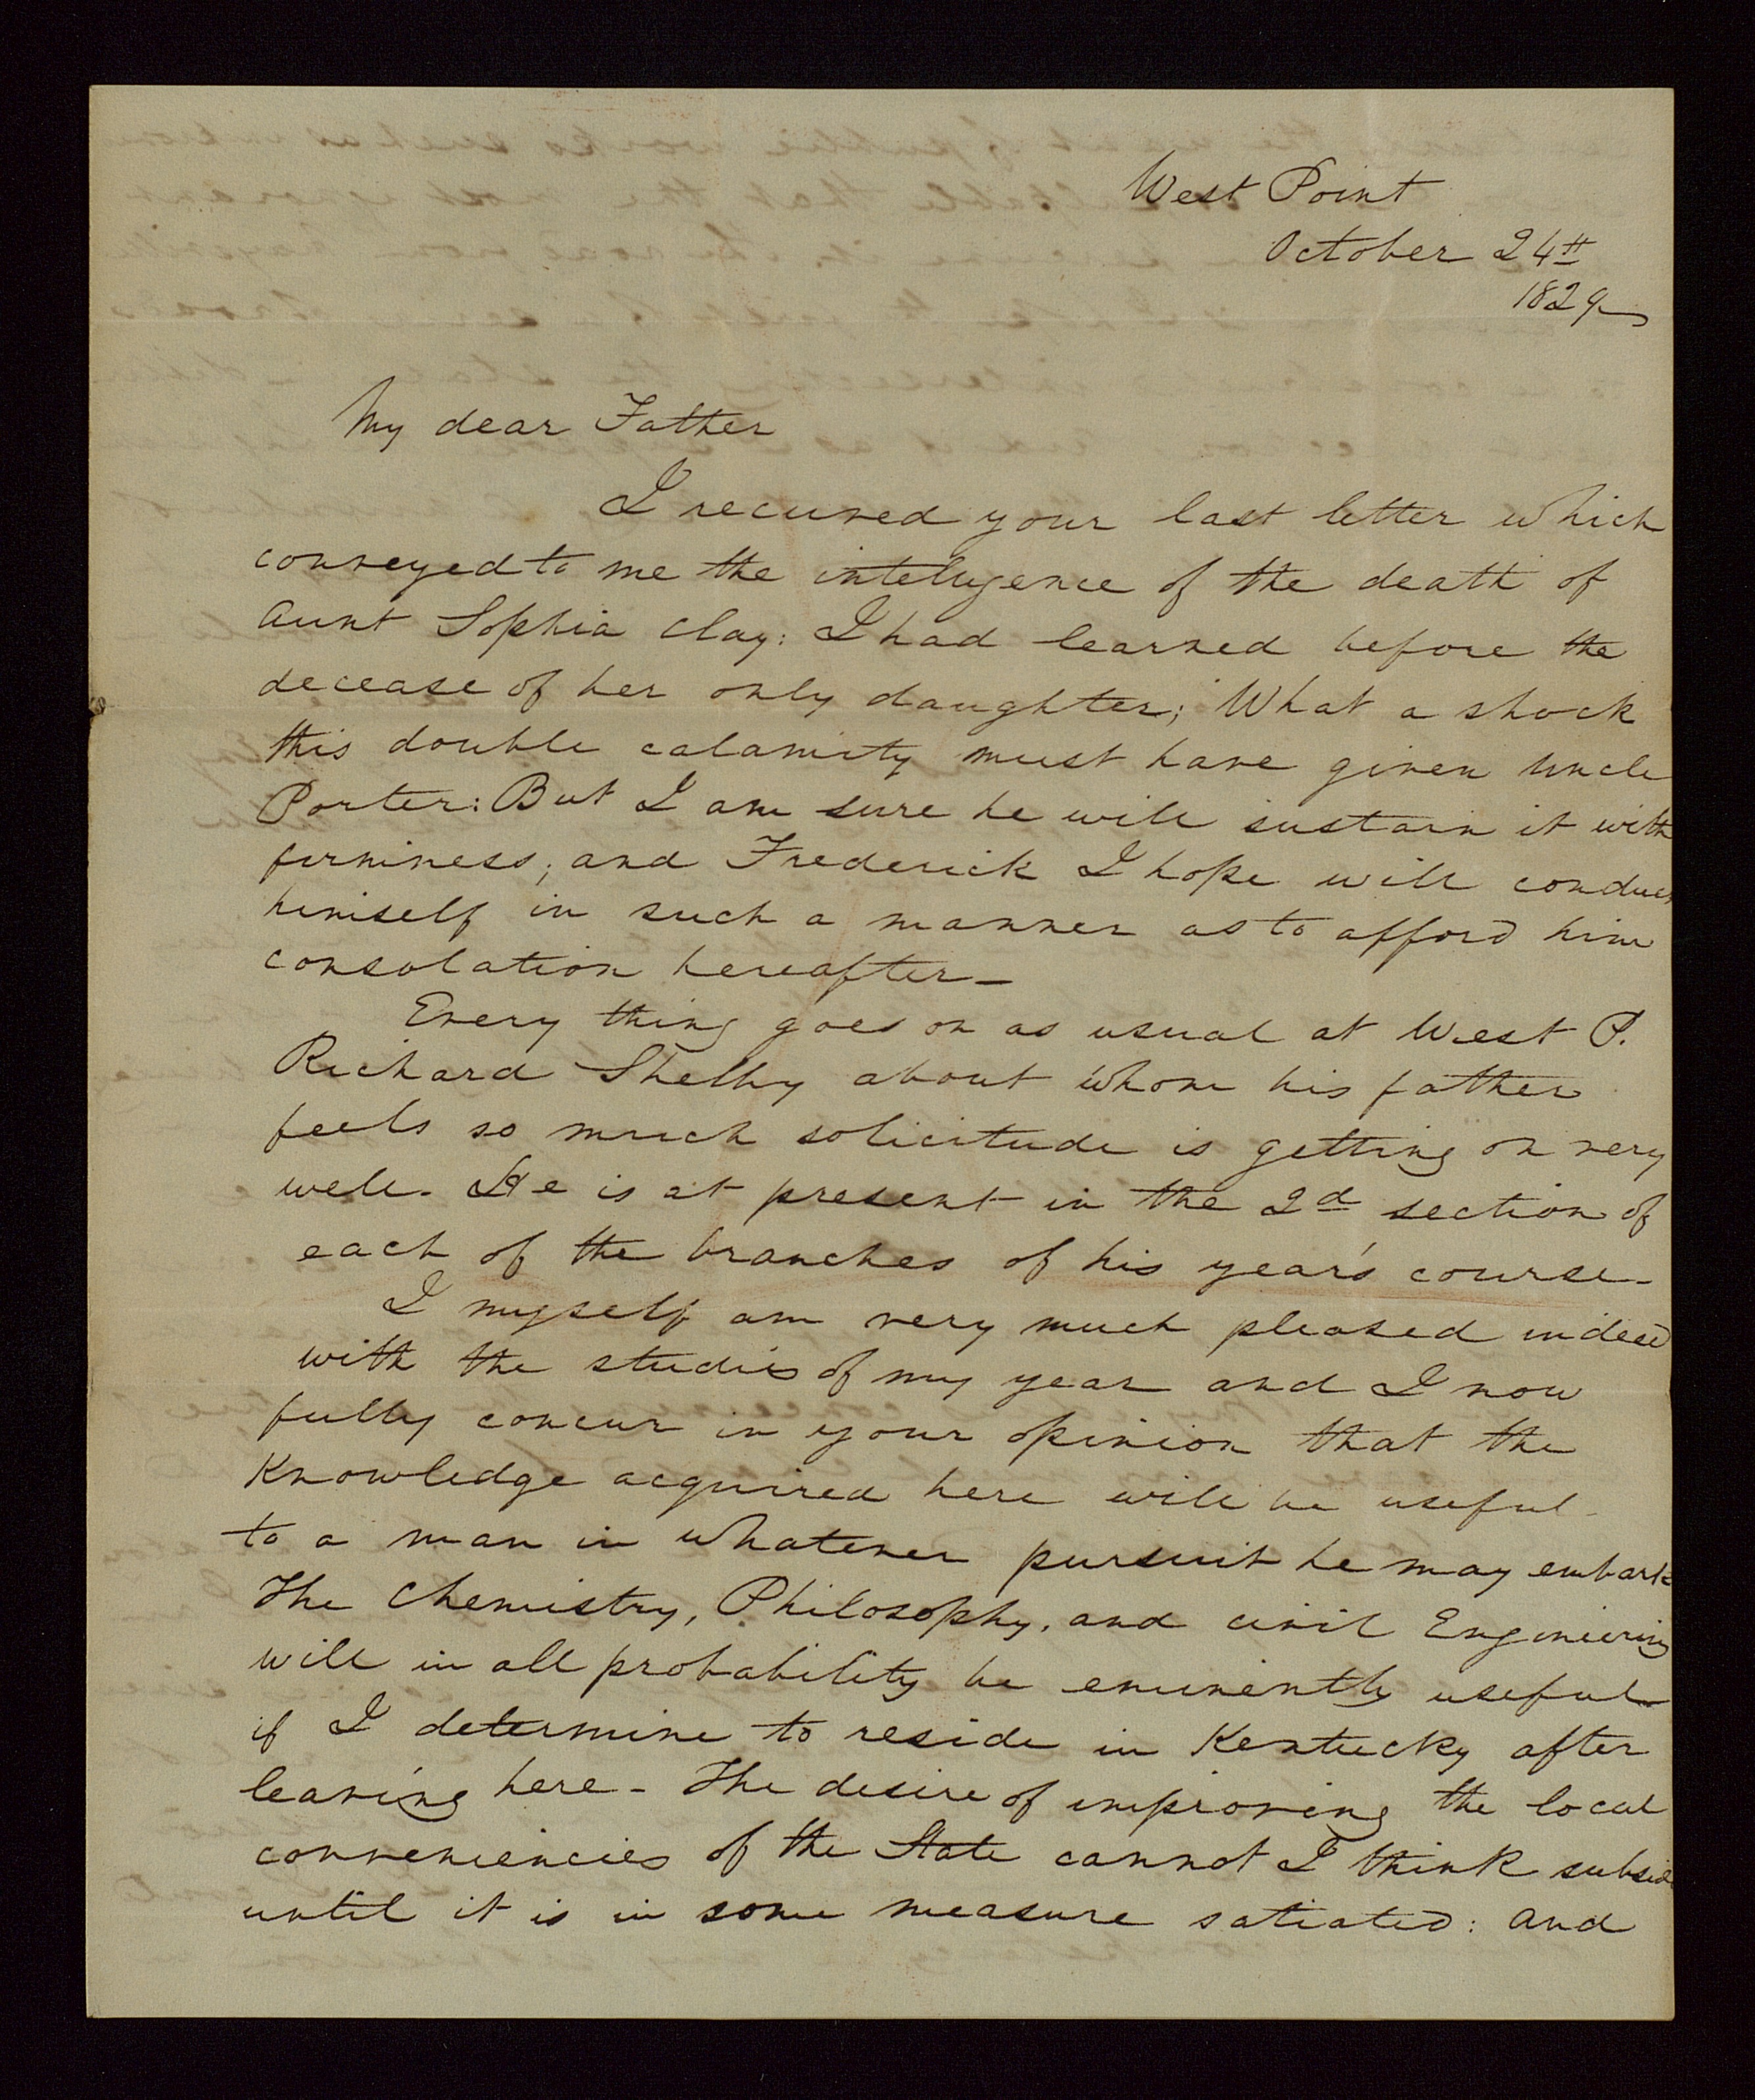 West Point
October 24th
1829
My dear Father
I received your last letter which
conveyed to me the intelligence of the death of
Aunt Sophia Clay: I had learned before the
decease of her only daughter; What a shock
this double calamity must have given Uncle
Porter: But I am sure he will sustain it with
firminess; and Frederick I hope will conduct
himself in such a manner as to afford him
consolation hereafter—
Every thing goes on as usual at West P.
Richard Shelby about whom his father
feels so much solicitude is getting on very
well. He is at present in the 2d section of
each of the branches of his year's course—
I myself am very much pleased indeed
with the studies of my year and I now
fully concur in your opinion that the
Knowledge acquired here will be useful
to a man in whatever pursuit he may embark
The Chemistry, Philosophy, and civil Engineering
will in all probability be eminently useful
if I determine to reside in Kentucky after
leaving here - The desire of improving the local
conveniencies of the State cannot I think subside
until it is in some measure satiated: and